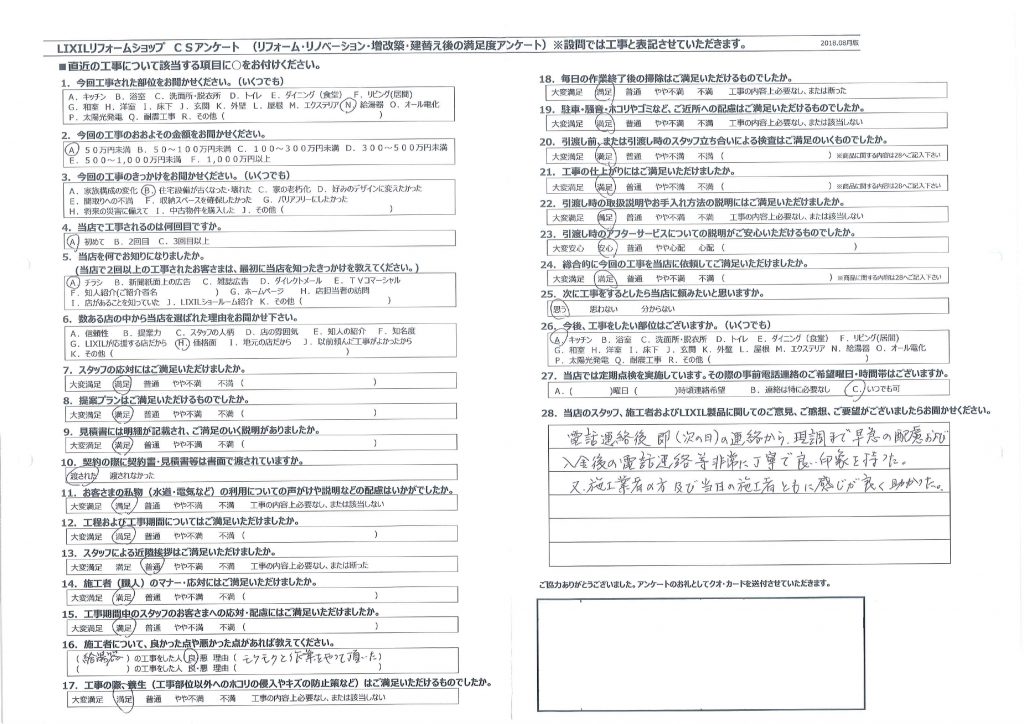 LIXILリフォームショップ CSアンケート （リフォーム・リノベーション・増改築・建替え後の満足度アンケート）※設問では工事と表記させていただきます。
2018.08月版
■直近の工事について該当する項目に○をお付けください。
1．今回工事された部位をお聞かせください。（いくつでも）
A．キッチン B．浴室 C．洗面所・脱衣所 D．トイレ E．ダイニング（食堂） F．リビング(居間)
G．和室 H．洋室 I．床下 J．玄関 K．外壁 L．屋根 M．エクステリア N．給湯器 O．オール電化
P．太陽光発電 Q．耐震工事 R．その他（ ）
2．今回の工事のおおよその金額をお聞かせください。
A．50万円未満 B．50～100万円未満 C．100～300万円未満 D．300～500万円未満
E．500～1,000万円未満 F．1,000万円以上
3．今回の工事のきっかけをお聞かせください。（いくつでも）
A．家族構成の変化 B．住宅設備が古くなった・壊れた C．家の老朽化 D．好みのデザインに変えたかった
E．間取りへの不満 F．収納スペースを確保したかった G．バリアフリーにしたかった
H．将来の災害に備えて I．中古物件を購入した J．その他（ ）
4．当店で工事されるのは何回目ですか。
A．初めて B．2回目 C．3回目以上
5．当店を何でお知りになりましたか。
(当店で2回以上の工事されたお客さまは、最初に当店を知ったきっかけを教えてください。)
A．チラシ B．新聞紙面上の広告 C．雑誌広告 D．ダイレクトメール E．TVコマーシャル
F．知人紹介(ご紹介者名 ) G．ホームページ H．店担当者の訪問
I．店があることを知っていた J．LIXILショールーム紹介 K．その他（ ）
6．数ある店の中から当店を選ばれた理由をお聞かせ下さい。
A．信頼性 B．提案力 C．スタッフの人柄 D．店の雰囲気 E．知人の紹介 F．知名度
G．LIXILが応援する店だから H．価格面 I．地元の店だから J．以前頼んだ工事がよかったから
K．その他（ ）
7．スタッフの応対にはご満足いただけましたか。
大変満足 満足 普通 やや不満 不満（ ）
8．提案プランはご満足いただけるものでしたか。
大変満足 満足 普通 やや不満 不満（ ）
9．見積書には明細が記載され、ご満足のいく説明がありましたか。
大変満足 満足 普通 やや不満 不満（ ）
10．契約の際に契約書・見積書等は書面で渡されていますか。
渡された 渡されなかった
11．お客さまの私物（水道・電気など）の利用についての声がけや説明などの配慮はいかがでしたか。
大変満足 満足 普通 やや不満 不満 工事の内容上必要なし、または該当しない
12．工程および工事期間についてはご満足いただけましたか。
大変満足 満足 普通 やや不満 不満（ ）
13．スタッフによる近隣挨拶はご満足いただけましたか。
大変満足 満足 普通 やや不満 不満 工事の内容上必要なし、または断った
14．施工者（職人）のマナー・応対にはご満足いただけましたか。
大変満足 満足 普通 やや不満 不満（ ）
15．工事期間中のスタッフのお客さまへの応対・配慮にはご満足いただけましたか。
大変満足 満足 普通 やや不満 不満（ ）
16．施工者について、良かった点や悪かった点があれば教えてください。
（ 給湯器 ）の工事をした人 良・悪 理由（ モクモクと作業をやって頂いた ）
（ ）の工事をした人 良・悪 理由（ ）
17．工事の際、養生（工事部位以外へのホコリの侵入やキズの防止策など）はご満足いただけるものでしたか。
大変満足 満足 普通 やや不満 不満 工事の内容上必要なし、または該当しない
18．毎日の作業終了後の掃除はご満足いただけるものでしたか。
大変満足 満足 普通 やや不満 不満 工事の内容上必要なし、または断った
19．駐車・騒音・ホコリやゴミなど、ご近所への配慮はご満足いただけるものでしたか。
大変満足 満足 普通 やや不満 不満 工事の内容上必要なし、または該当しない
20．引渡し前、または引渡し時のスタッフ立ち合いによる検査はご満足のいくものでしたか。
大変満足 満足 普通 やや不満 不満（ ）※商品に関する内容は28へご記入下さい
21．工事の仕上がりにはご満足いただけましたか。
大変満足 満足 普通 やや不満 不満（ ）※商品に関する内容は28へご記入下さい
22．引渡し時の取扱説明やお手入れ方法の説明にはご満足いただけましたか。
大変満足 満足 普通 やや不満 不満 工事の内容上必要なし、または該当しない
23．引渡し時のアフターサービスについての説明がご安心いただけるものでしたか。
大変安心 安心 普通 やや心配 心配（ ）
24．総合的に今回の工事を当店に依頼してご満足いただけましたか。
大変満足 満足 普通 やや不満 不満（ ）※商品に関する内容は28へご記入下さい
25．次に工事をするとしたら当店に頼みたいと思いますか。
思う 思わない 分からない
26．今後、工事をしたい部位はございますか。（いくつでも）
A．キッチン B．浴室 C．洗面所・脱衣所 D．トイレ E．ダイニング（食堂） F．リビング(居間)
G．和室 H．洋室 I．床下 J．玄関 K．外壁 L．屋根 M．エクステリア N．給湯器 O．オール電化
P．太陽光発電 Q．耐震工事 R．その他（ ）
27．当店では定期点検を実施しています。その際の事前電話連絡のご希望曜日・時間帯はございますか。
A．（ ）曜日（ ）時頃連絡希望 B．連絡は特に必要なし C．いつでも可
28．当店のスタッフ、施工者およびLIXIL製品に関してのご意見、ご感想、ご要望がございましたらお聞かせください。
電話連絡後 即（次の日）の連絡から、理調まで早急の配慮および
入金後の電話連絡等非常に丁寧で良い印象を持った。
又、施工業者の方及び当日の施工者ともに感じが良く助かった。
ご協力ありがとうございました。アンケートのお礼としてクオ・カードを送付させていただきます。